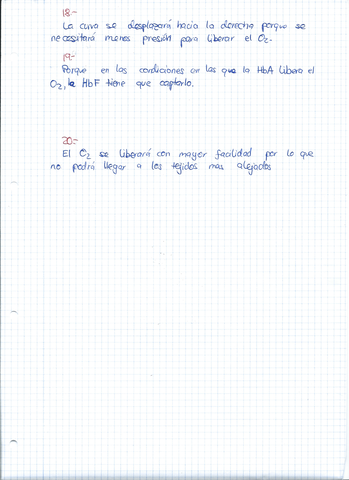 18.-
La curva se desplazará hacia la derecha porque se
necesitará menos presión para liberar el O2.
19.-
Porque en las condiciones en las que la HbA libera el
O2, la HbF tiene que captarlo.
20.-
El O2 se liberará con mayor facilidad por lo que
no podrá llegar a los tejidos mas alejados